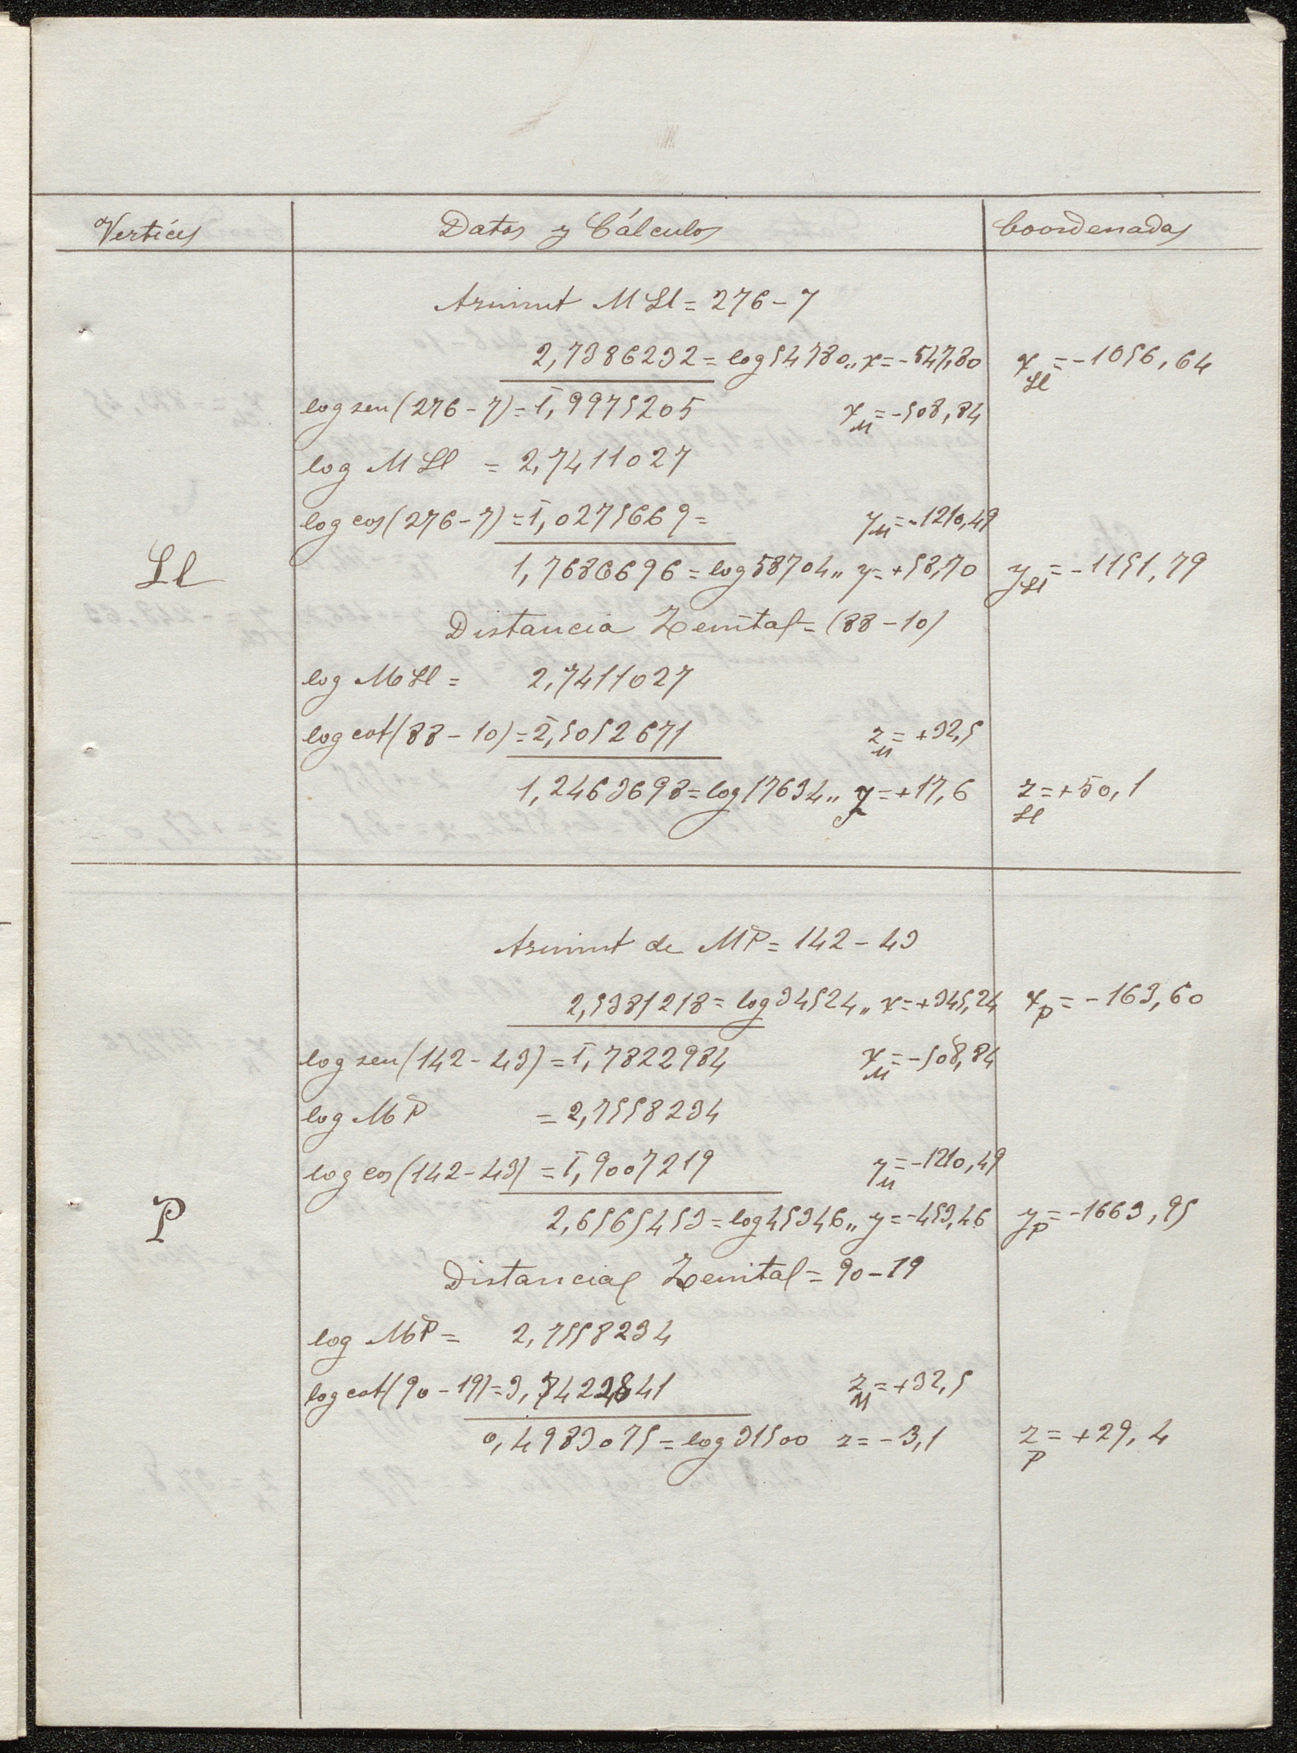 Vertices Datos y Cálculos Coordenadas
Azimut M Ll = 276-7
2,7386232 = log 54780,, x = -547,80 x Ll = -1056,64
log sen (276-7) = 1̄,9975205 x M = -508,84
log M Ll = 2,7411027
log cos (276-7) = 1̄,0275669 = y M = -1210,49
Ll 1,7686696 = log 58704,, y = +58,70 y Ll = -1151,79
Distancia Zenital = (88-10)
log M Ll = 2,7411027
log cot (88-10) = 2̄,5052671 z M = +32,5
1,2463698 = log 17634,, z = +17,6 z Ll = +50,1
Azimut de MP = 142-43
2,5381218 = log 34524,, x = +345,24 x P = -163,60
log sen (142-43) = 1̄,7822984 x M = -508,84
log MP = 2,7558234
log cos (142-43) = 1̄,9007219 y M = -1210,49
P 2,6565453 = log 45346,, y = -453,46 y P = -1663,95
Distancia Zenital = 90-19
log MP = 2,7558234
log cot (90-19) = 3, z M = +32,5
0,4983075 = log 31500 z = -3,1 z P = +29,4